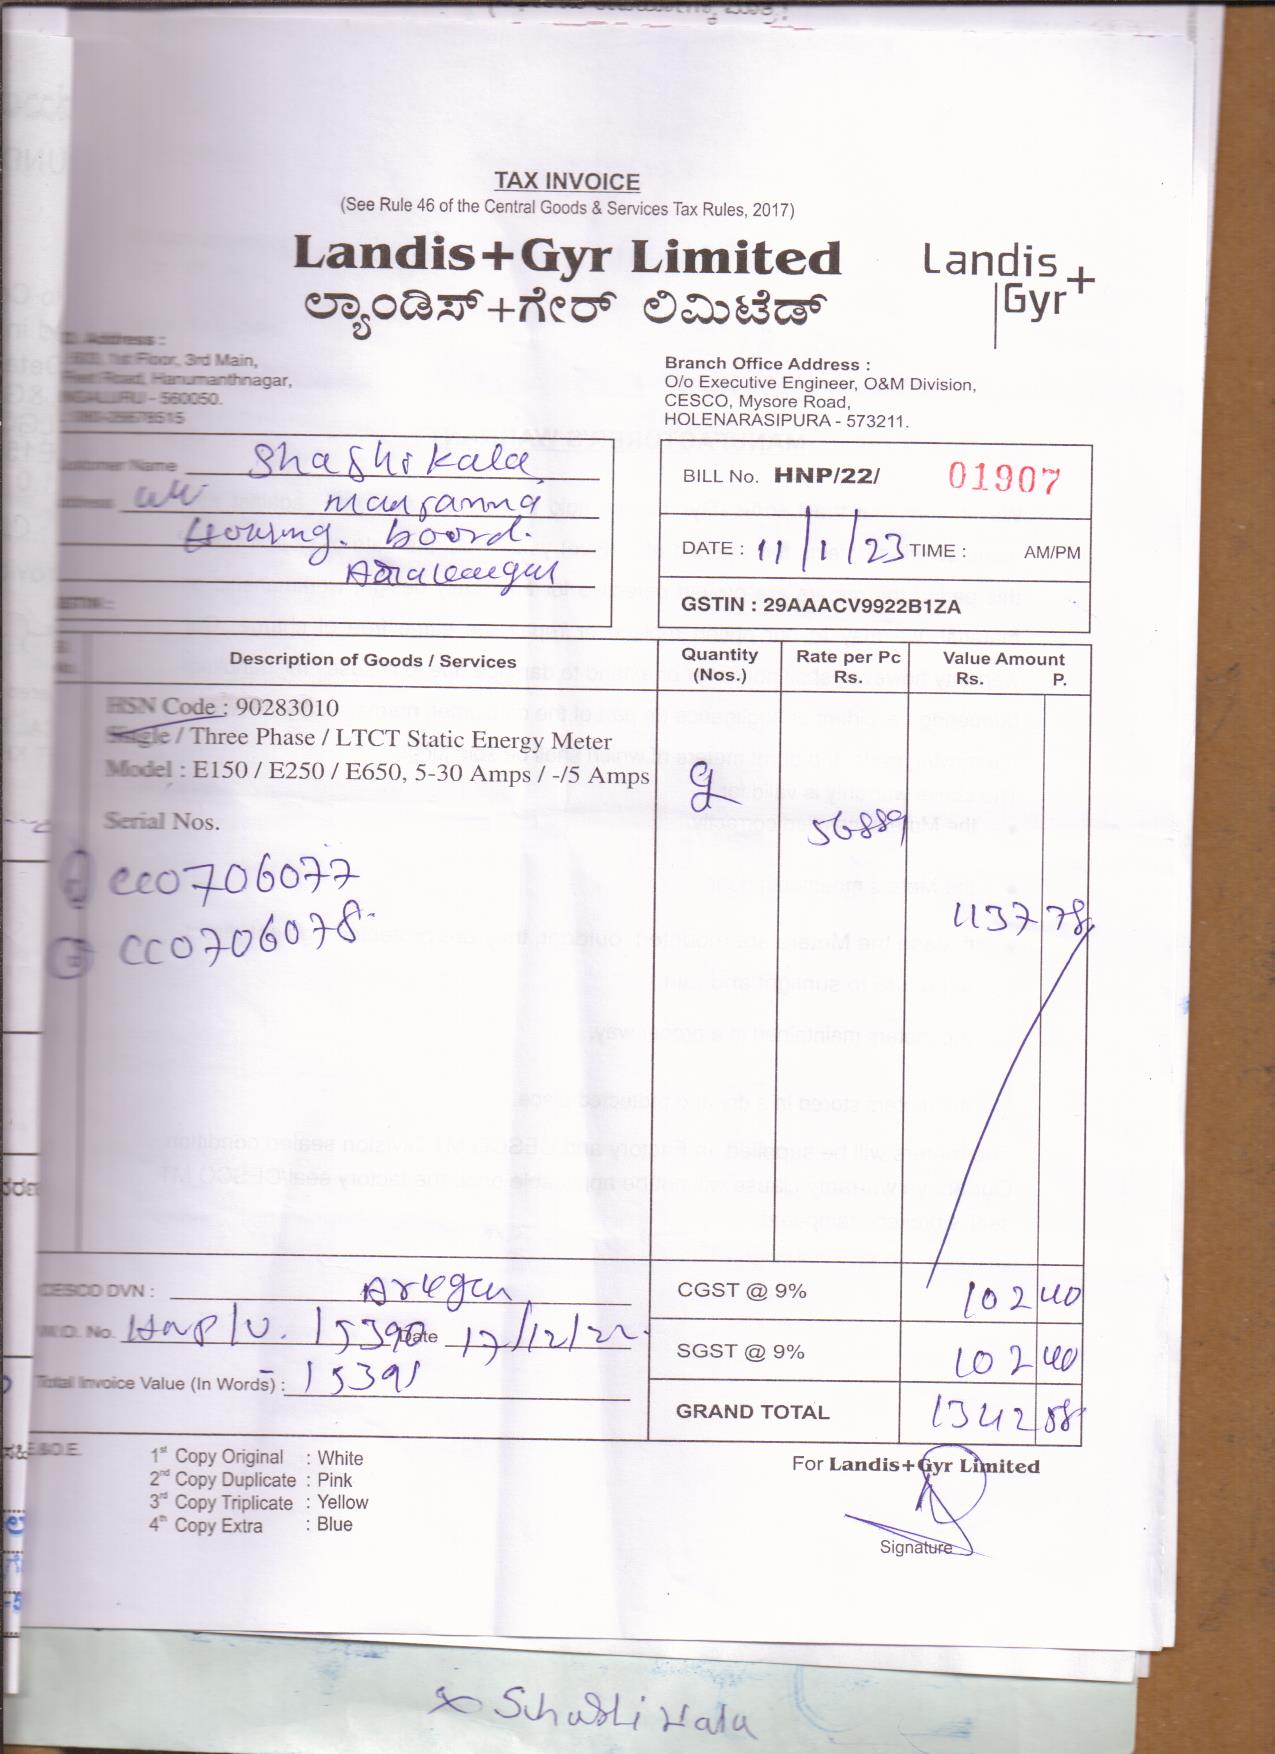 TAX INVOICE
(See Rule 46 of the Central Goods & Services Tax Rules, 2017)
Landis+Gyr Limited
ಲ್ಯಾಂಡಿಸ್+ಗೇರ್ ಲಿಮಿಟೆಡ್
Landis
Gyr+
Address :
1st Floor, 3rd Main,
Road, Hanumanthnagar,
- 560050.
Branch Office Address :
O/o Executive Engineer, O&M Division,
CESCO, Mysore Road,
HOLENARASIPURA - 573211.
Customer Name Shashikala
Housing. board.
BILL No. HNP/22/ 01907
DATE : 11/1/23 TIME : AM/PM
GSTIN :
GSTIN : 29AAACV9922B1ZA
Description of Goods / Services
Quantity (Nos.)
Rate per Pc Rs.
Value Amount Rs. P.
HSN Code : 90283010
Single / Three Phase / LTCT Static Energy Meter
Model : E150 / E250 / E650, 5-30 Amps / -/5 Amps
2
568.89
Serial Nos.
CC0706077
1137 78
CC0706078
CESCO DVN :
W.O. No. 15390 Date 17/12/22
Total Invoice Value (In Words) : 15391
CGST @ 9% 102 40
SGST @ 9% 102 40
GRAND TOTAL 1342 58
E.&O.E.
1st Copy Original : White
2nd Copy Duplicate : Pink
3rd Copy Triplicate : Yellow
4th Copy Extra : Blue
For Landis+Gyr Limited
Signature